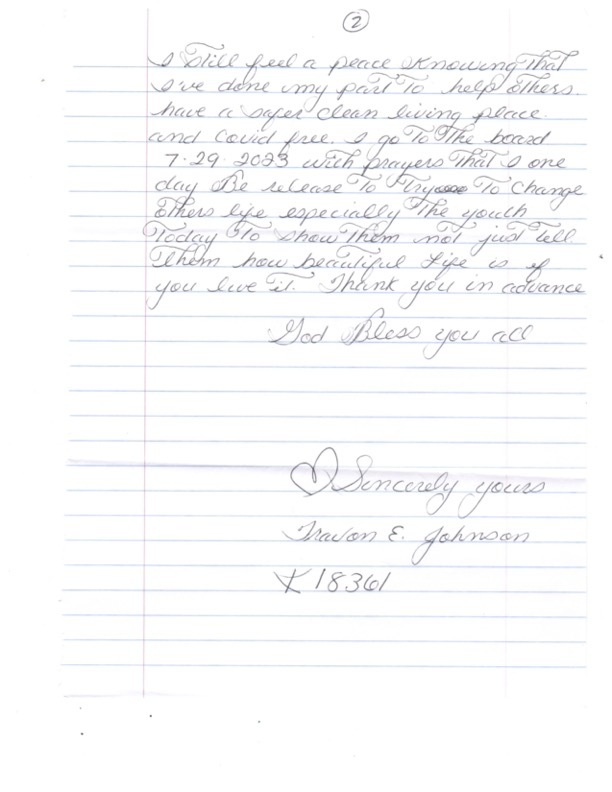 2
I still feel a peace knowing that
I've done my part to help others.
have a safer clean living place.
and Covid free. I go to the board
7.29.2023 with prayers that I one
day Be release to try to change
others life especially the youth
Today to show them not just tell
them how beautiful Life is if
you live it. Thank you in advance
God Bless you all
Sincerely yours
Travon E. Johnson
K18361